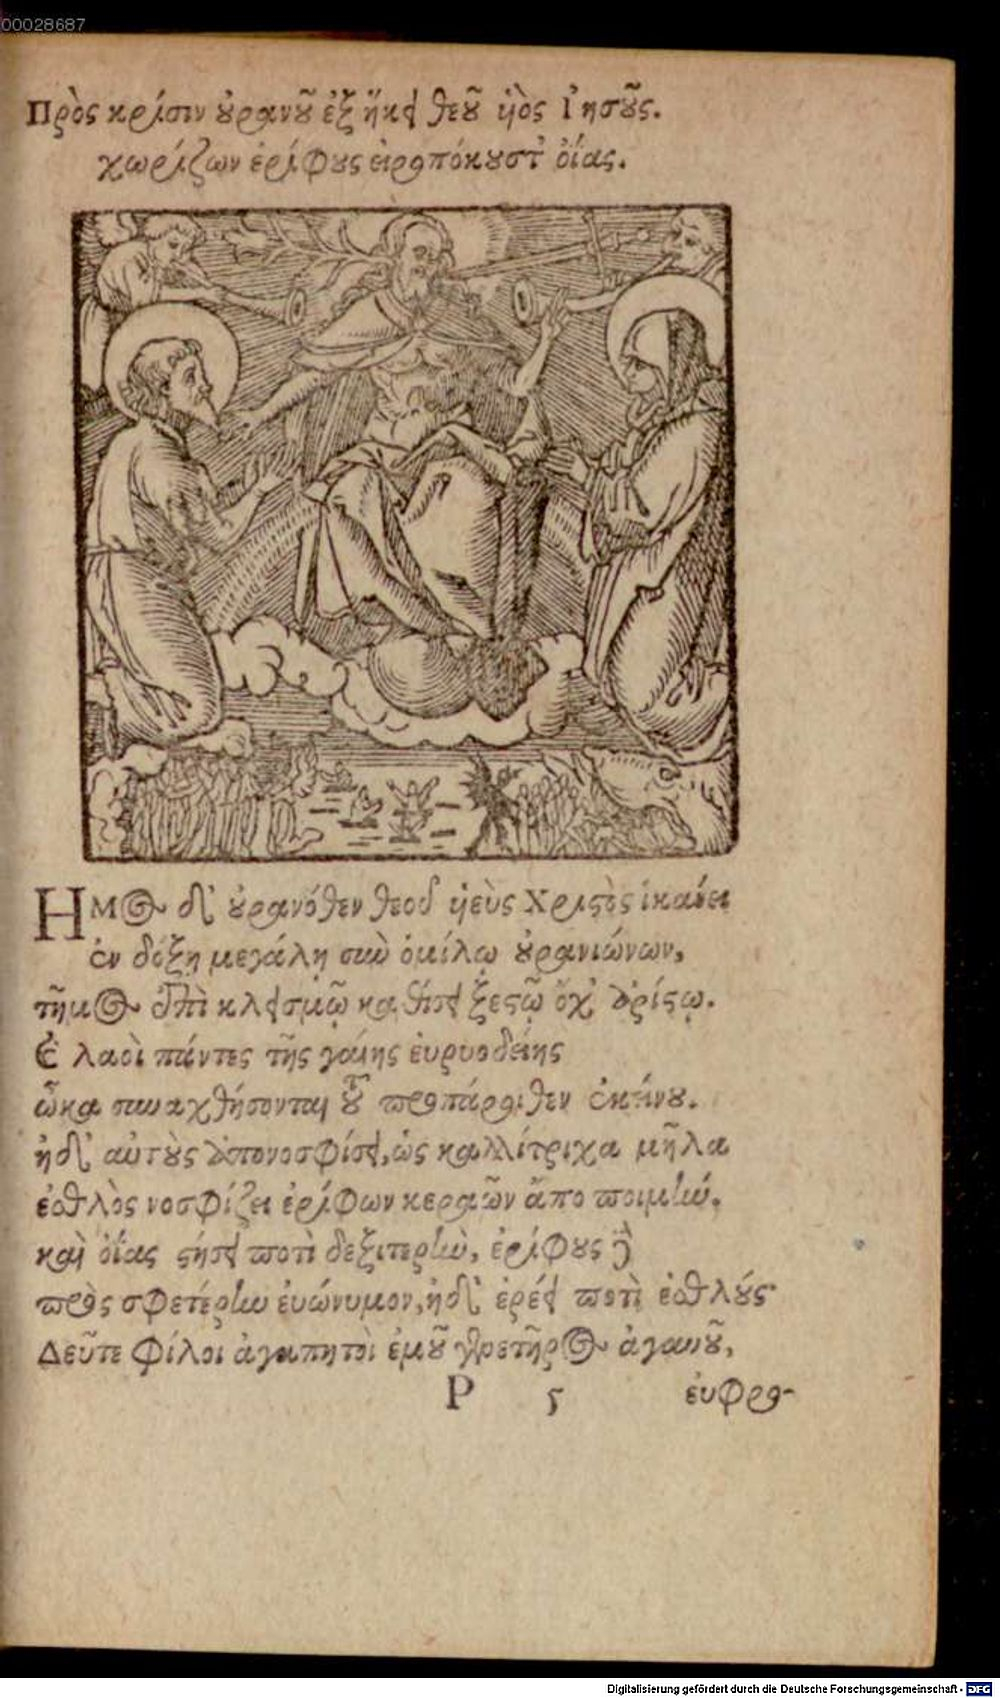 00028687
Πρὸς κρίσιν οὐρανοῦ ἐξ ἥκει θεοῦ υἱὸς Ἰησοῦς.
χωρίζων ἐρίφους εἰροπόκους τ' ὄϊας.
Ημος δ' οὐρανόθεν θεοῦ υἱεὺς Χριστὸς ἱκάνει
ἐν δόξῃ μεγάλῃ σὺν ὁμίλῳ οὐρανιώνων,
τῆμος ἐπὶ κλεισμῷ καθίσει ξεστῷ ὄχ' ἀρίστῳ.
λαοὶ πάντες τῆς γαίης εὐρυοδείης
ὦκα συναχθήσονται τοῦ προπάροιθεν ἐκείνου.
ἠδ' αὐτοὺς ἀπονοσφίσει, ὡς καλλίτριχα μῆλα
ἐσθλὸς νοσφίζει ἐρίφων κεραῶν ἄπο ποιμήν.
καὶ ὄϊας στήσει ποτὶ δεξιτερὴν, ἐρίφους δὲ
πρὸς σφετέρην εὐώνυμον, ἠδ' ἐρέει ποτὶ ἐσθλούς
Δεῦτε φίλοι ἀγαπητοὶ ἐμοῦ γενετῆρος ἀγανοῦ,
P 5 εὐφρο-
Digitalisierung gefördert durch die Deutsche Forschungsgemeinschaft - DFG